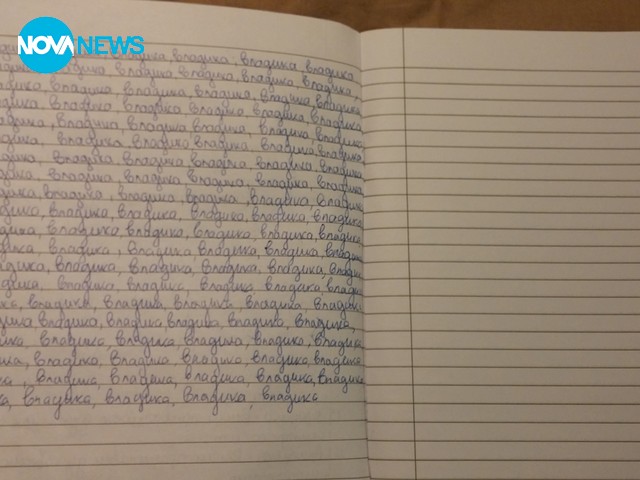 NOVA NEWS
владика, владика, владика, владика
дика, владика, владика владика, владика, владика,
дика, владика, владика, владика, владика, владика
дика, владика, владика, владика, владика, владика
дика, владика, владика владика, владика, владика
дика, владика, владика владика, владика, владика
дика, владика, владика владика, владика, владика
дика, владика, владика владика, владика, владика
дика, владика, владика, владика, владика, владика
дика, владика, владика, владика, владика, владика
ика, владика, владика, владика, владика, владика
ика, владика, владика, владика, владика, владика
дика, владика, владика, владика, владика, владик
дика, владика, владика, владика, владика, владик
ика, владика, владика, владика, владика, владика
ика владика, владика, владика, владика, владика,
ика, владика, владика, владика, владика, владика
ика, владика, владика, владика владика, владика
ка, владика, владика, владика, владика, владика
ка, владика, владика, владика, владика